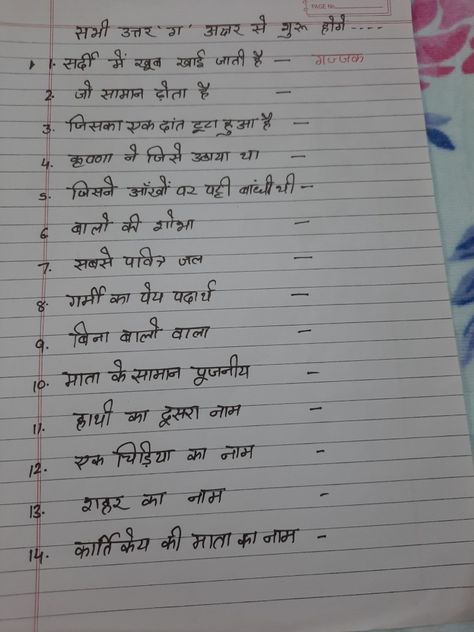 PAGE No.
सभी उत्तर 'ग' अक्षर से शुरू होगे ----
1. सर्दी में खूब खाई जाती है - गज्जक
2. जो सामान ढोता है -
3. जिसका एक दांत टूटा हुआ है -
4. कृष्णा ने जिसे उठाया था -
5. जिसने आँखों पर पट्टी बांधी थी -
6. बालो की शोभा -
7. सबसे पवित्र जल -
8. गर्मी का पेय पदार्थ -
9. बिना बालो वाला -
10. माता के सामान पूजनीय -
11. हाथी का दूसरा नाम -
12. एक चिड़िया का नाम -
13. शहर का नाम -
14. कार्तिकेय की माता का नाम -